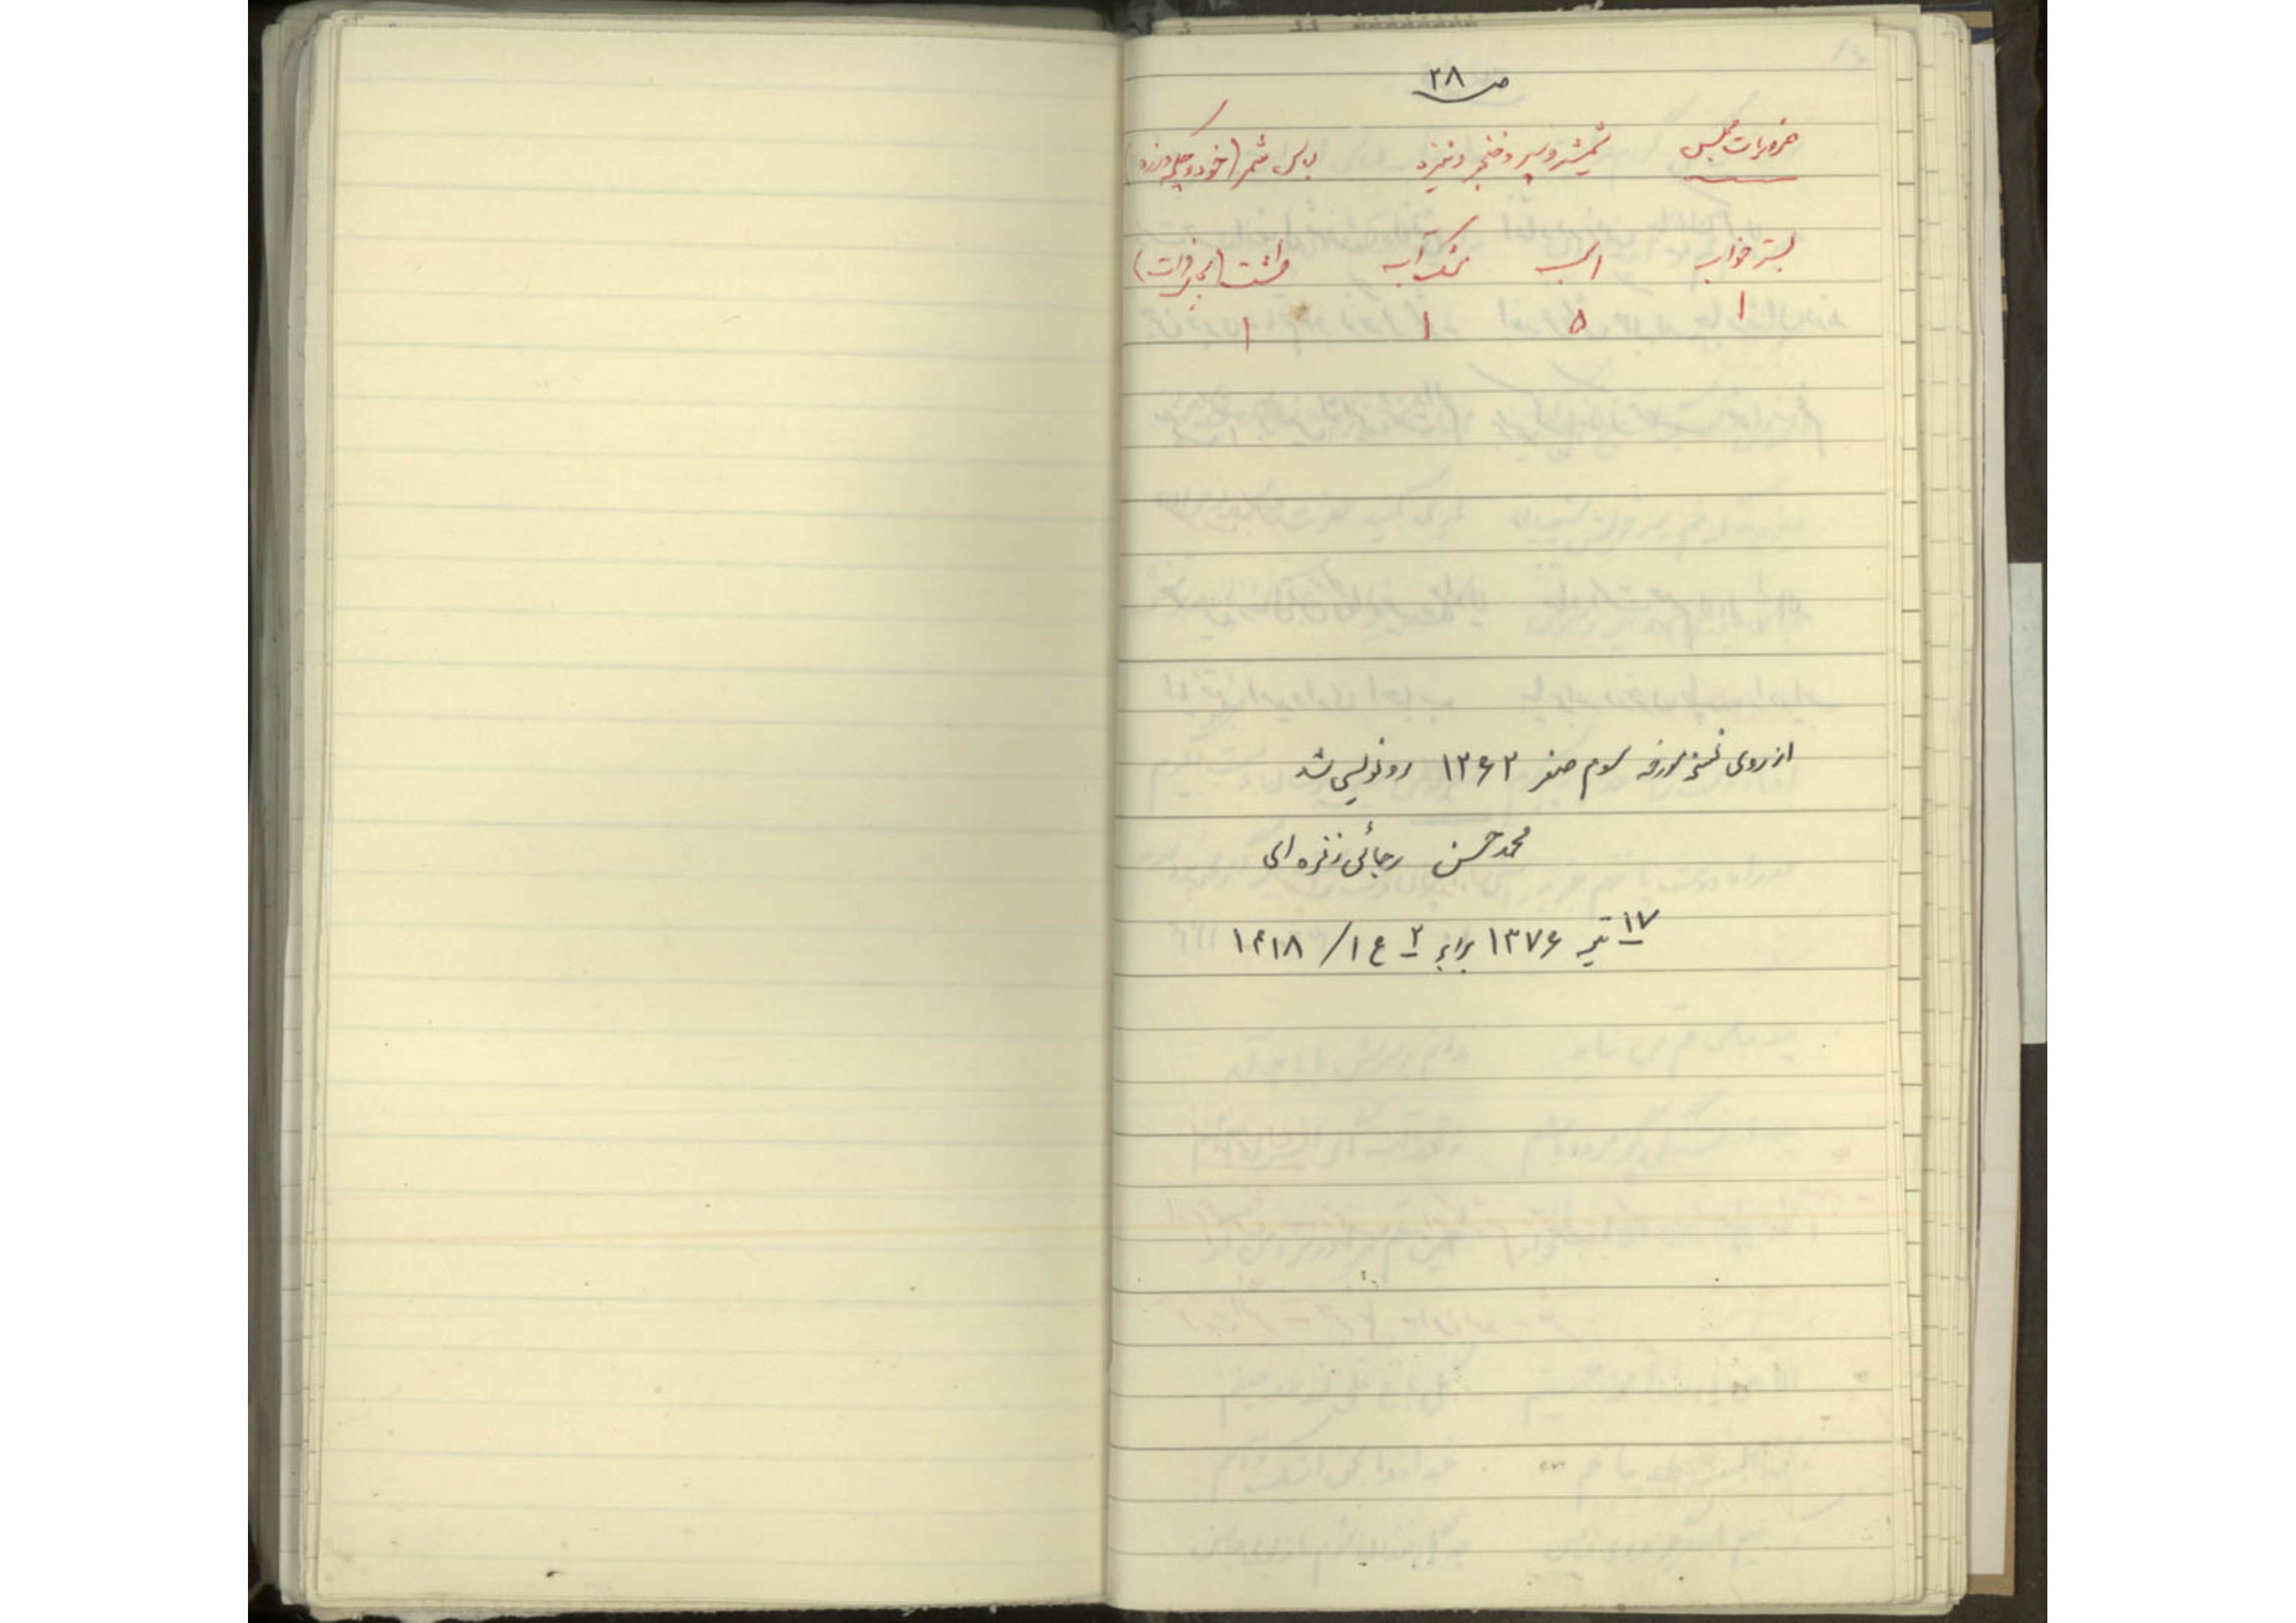 ص ۲۸
ضروریات مجلس شمشیر و سپر و خنجر و نیزه لباس شمر (خود و چکمه و زره)
بستر خواب اسب مشک آب طشت (بجای فرات)
۱ ۵ ۱ ۱
از روی نسخه مورخه سوم صفر ۱۳۶۳ رونویسی شد
محمد حسن رجائی زفره ای
۱۷ تیر ۱۳۷۶ برابر ۲ ع ۱/ ۱۴۱۸